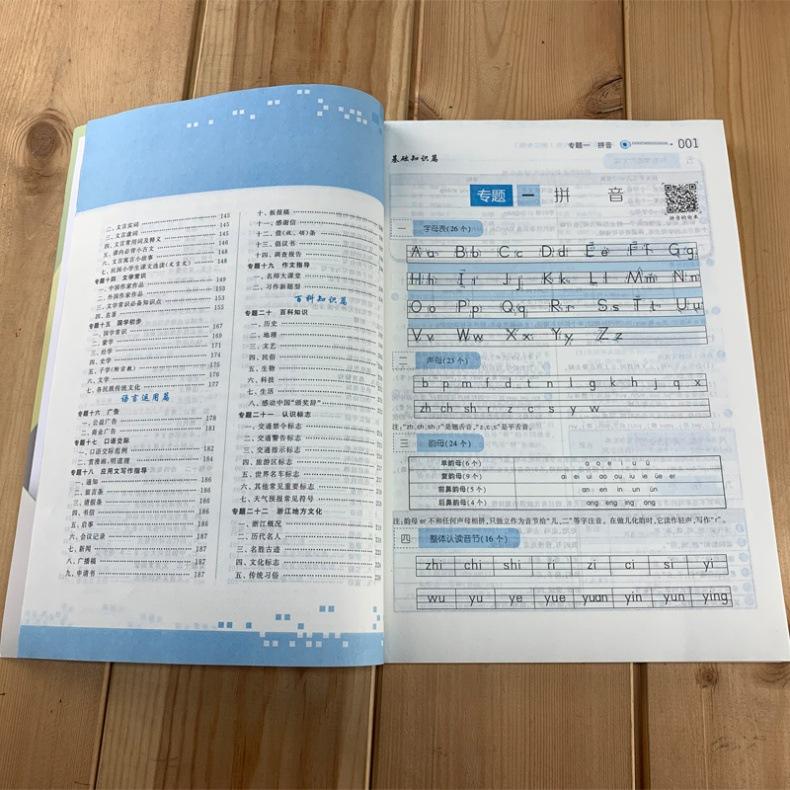 二、文言实词 145
三、文言虚词 145
四、文言常用词及释义 146
五、课内必背小古文 146
六、文言寓言小故事 148
七、祝国小学生课文选读(文言文) 148
专题十四 文学常识
一、中国作家作品 149
二、外国作家作品 150
三、文学常识必备知识点 153
四、名著 155
专题十五 国学初步
一、国学常识 167
二、蒙学 169
三、经学 171
四、史学 174
五、子学(附宗教) 175
六、文学 176
七、各民族传统文化 177
语言运用篇
专题十六 广告
一、公益广告 178
二、商业广告 181
专题十七 口语交际
一、口语交际范例 182
二、赏漫画,明道理 184
专题十八 应用文写作指导
一、通知 186
二、留言条 186
三、请假条 186
四、书信 186
五、启事 186
六、会议记录 187
七、新闻 187
八、广播稿 187
九、申请书 187
十、板报稿
十一、感谢信
十二、借(收、领)条
十三、倡议书
十四、调查报告
专题十九 作文指导
一、名师大课堂
二、习作新题型
百科知识篇
专题二十 百科知识
一、历史
二、地理
三、文艺
四、民俗
五、生物
六、科技
七、生活
八、感动中国“颁奖辞”
专题二十一 认识标志
一、交通禁令标志
二、交通警告标志
三、交通指示标志
四、旅游区标志
五、世界名车标志
六、其他常见重要标志
七、天气预报常见符号
专题二十二 浙江地方文化
一、浙江概况
二、历代名人
三、名胜古迹
四、文化标志
五、传统习俗
基础知识篇
专题一 拼音 001
专题一 拼音
一 字母表(26个)
Aa Bb Cc Dd Ee Ff Gg
Hh Ii Jj Kk Ll Mm Nn
Oo Pp Qq Rr Ss Tt Uu
Vv Ww Xx Yy Zz
二 声母(23个)
b p m f d t n l g k h j q x
zh ch sh r z c s y w
注:“zh、ch、sh、r”是翘舌音,“z、c、s”是平舌音。
三 韵母(24个)
单韵母(6个) a o e i u ü
复韵母(9个) ai ei ui ao ou iu ie üe er
前鼻韵母(5个) an en in un ün
后鼻韵母(4个) ang eng ing ong
注:韵母er不和任何声母相拼,只独立作为音节给“儿、二”等字注音。在做儿化韵时,它读作轻声,写作“r”。
四 整体认读音节(16个)
zhi chi shi ri zi ci si yi
wu yu ye yue yuan yin yun ying